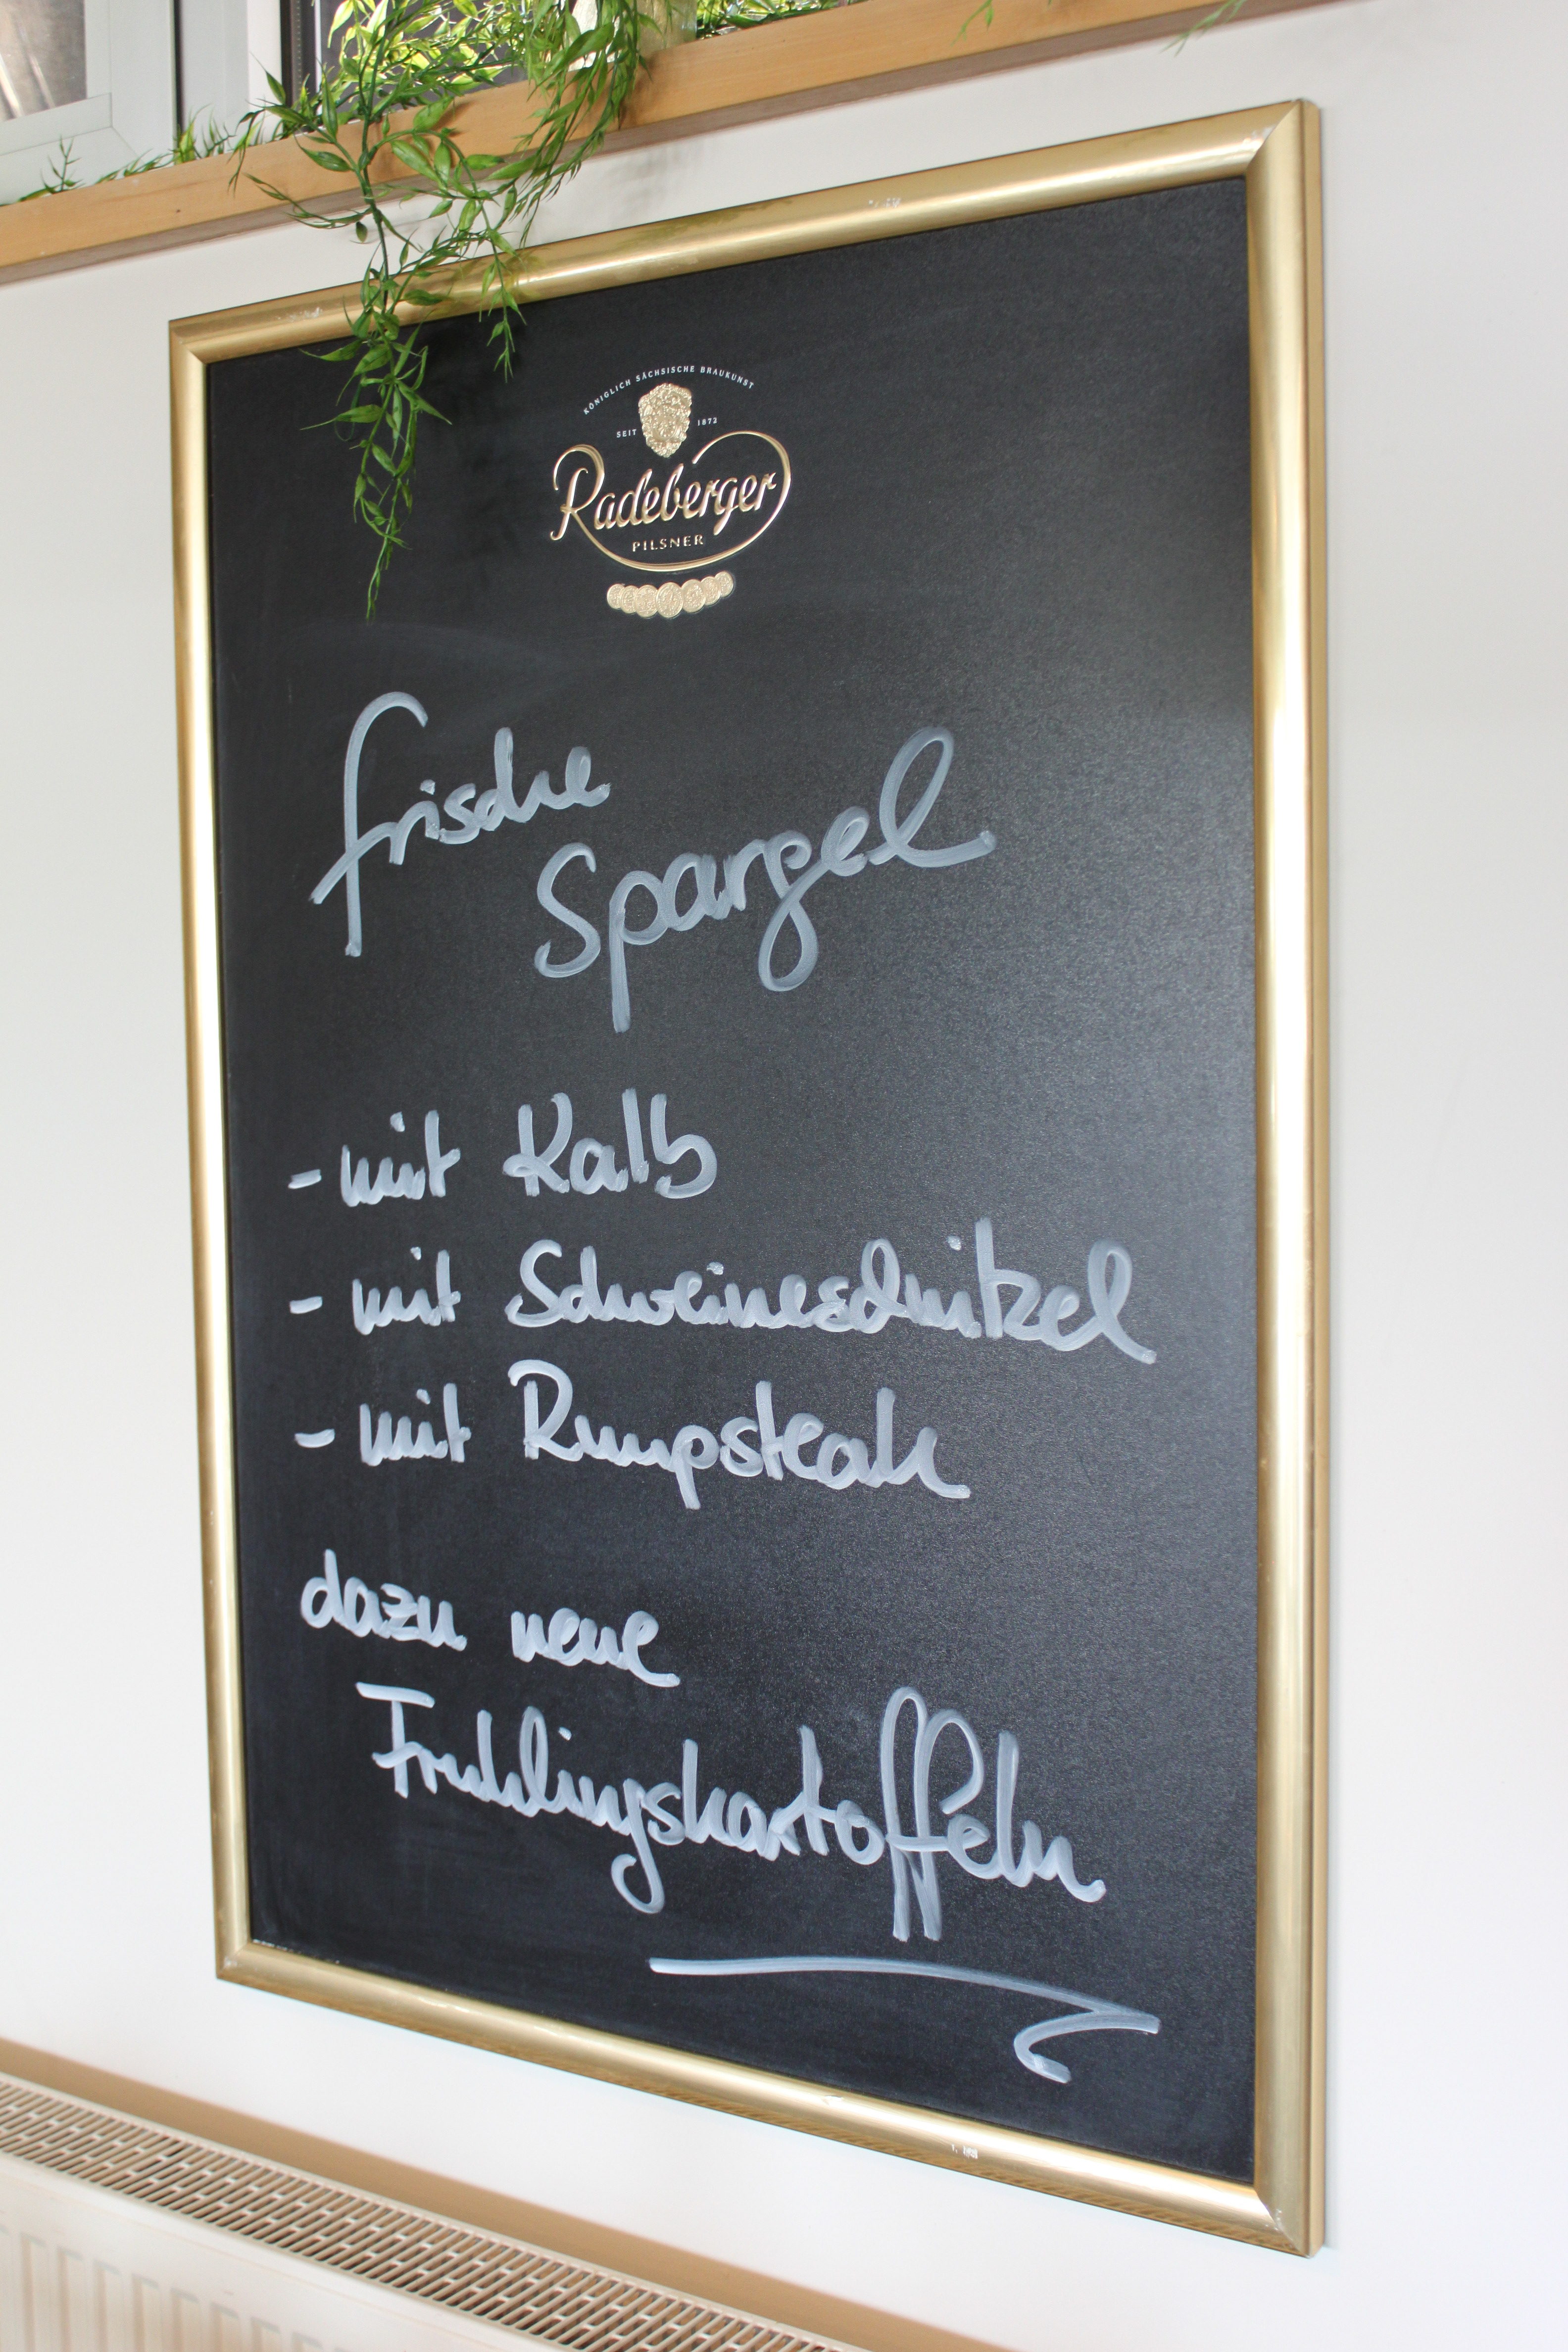 KÖNIGLICH SÄCHSISCHE BRAUKUNST
SEIT 1872
Radeberger
PILSNER
frische
Spargel
- mit Kalb
- mit Schweineschnitzel
- mit Rumpsteak
dazu neue
Fruhlingskartoffeln